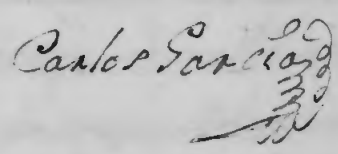 Carlos Garcia